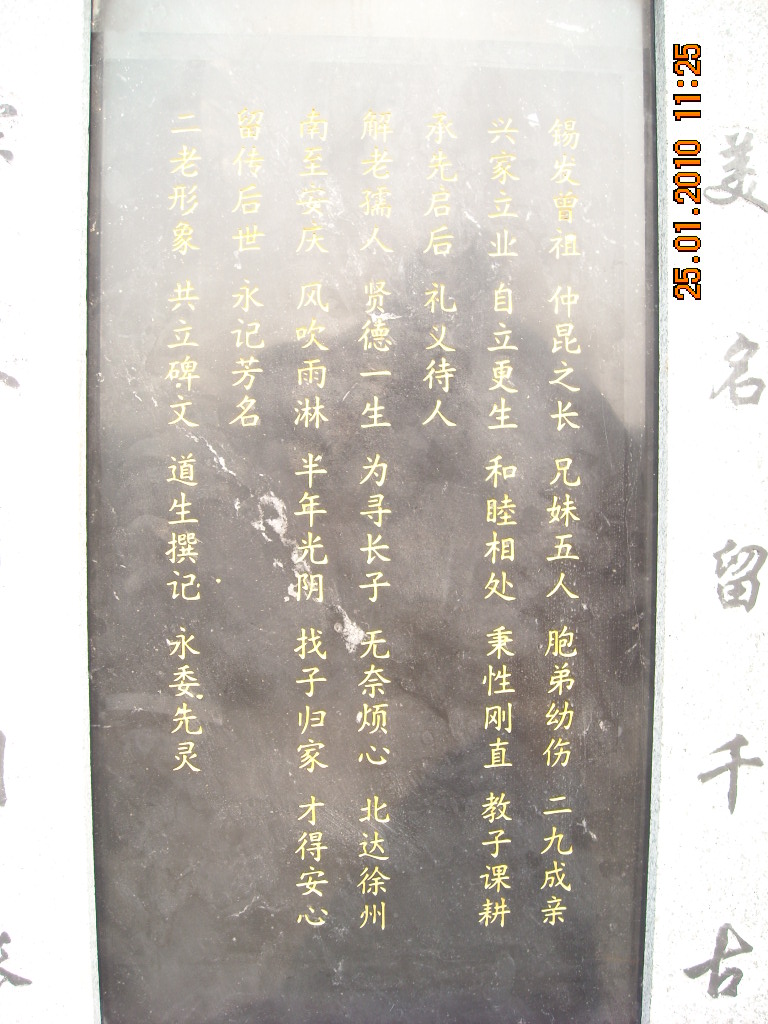 美名留千古
锡发曾祖 仲昆之长 兄妹五人 胞弟幼伤 二九成亲
兴家立业 自立更生 和睦相处 秉性刚直 教子课耕
承先启后 礼义待人
解老孺人 贤德一生 为寻长子 无奈烦心 北达徐州
南至安庆 风吹雨淋 半年光阴 找子归家 才得安心
留传后世 永记芳名
二老形象 共立碑文 道生撰记 永委先灵
25.01.2010 11:25